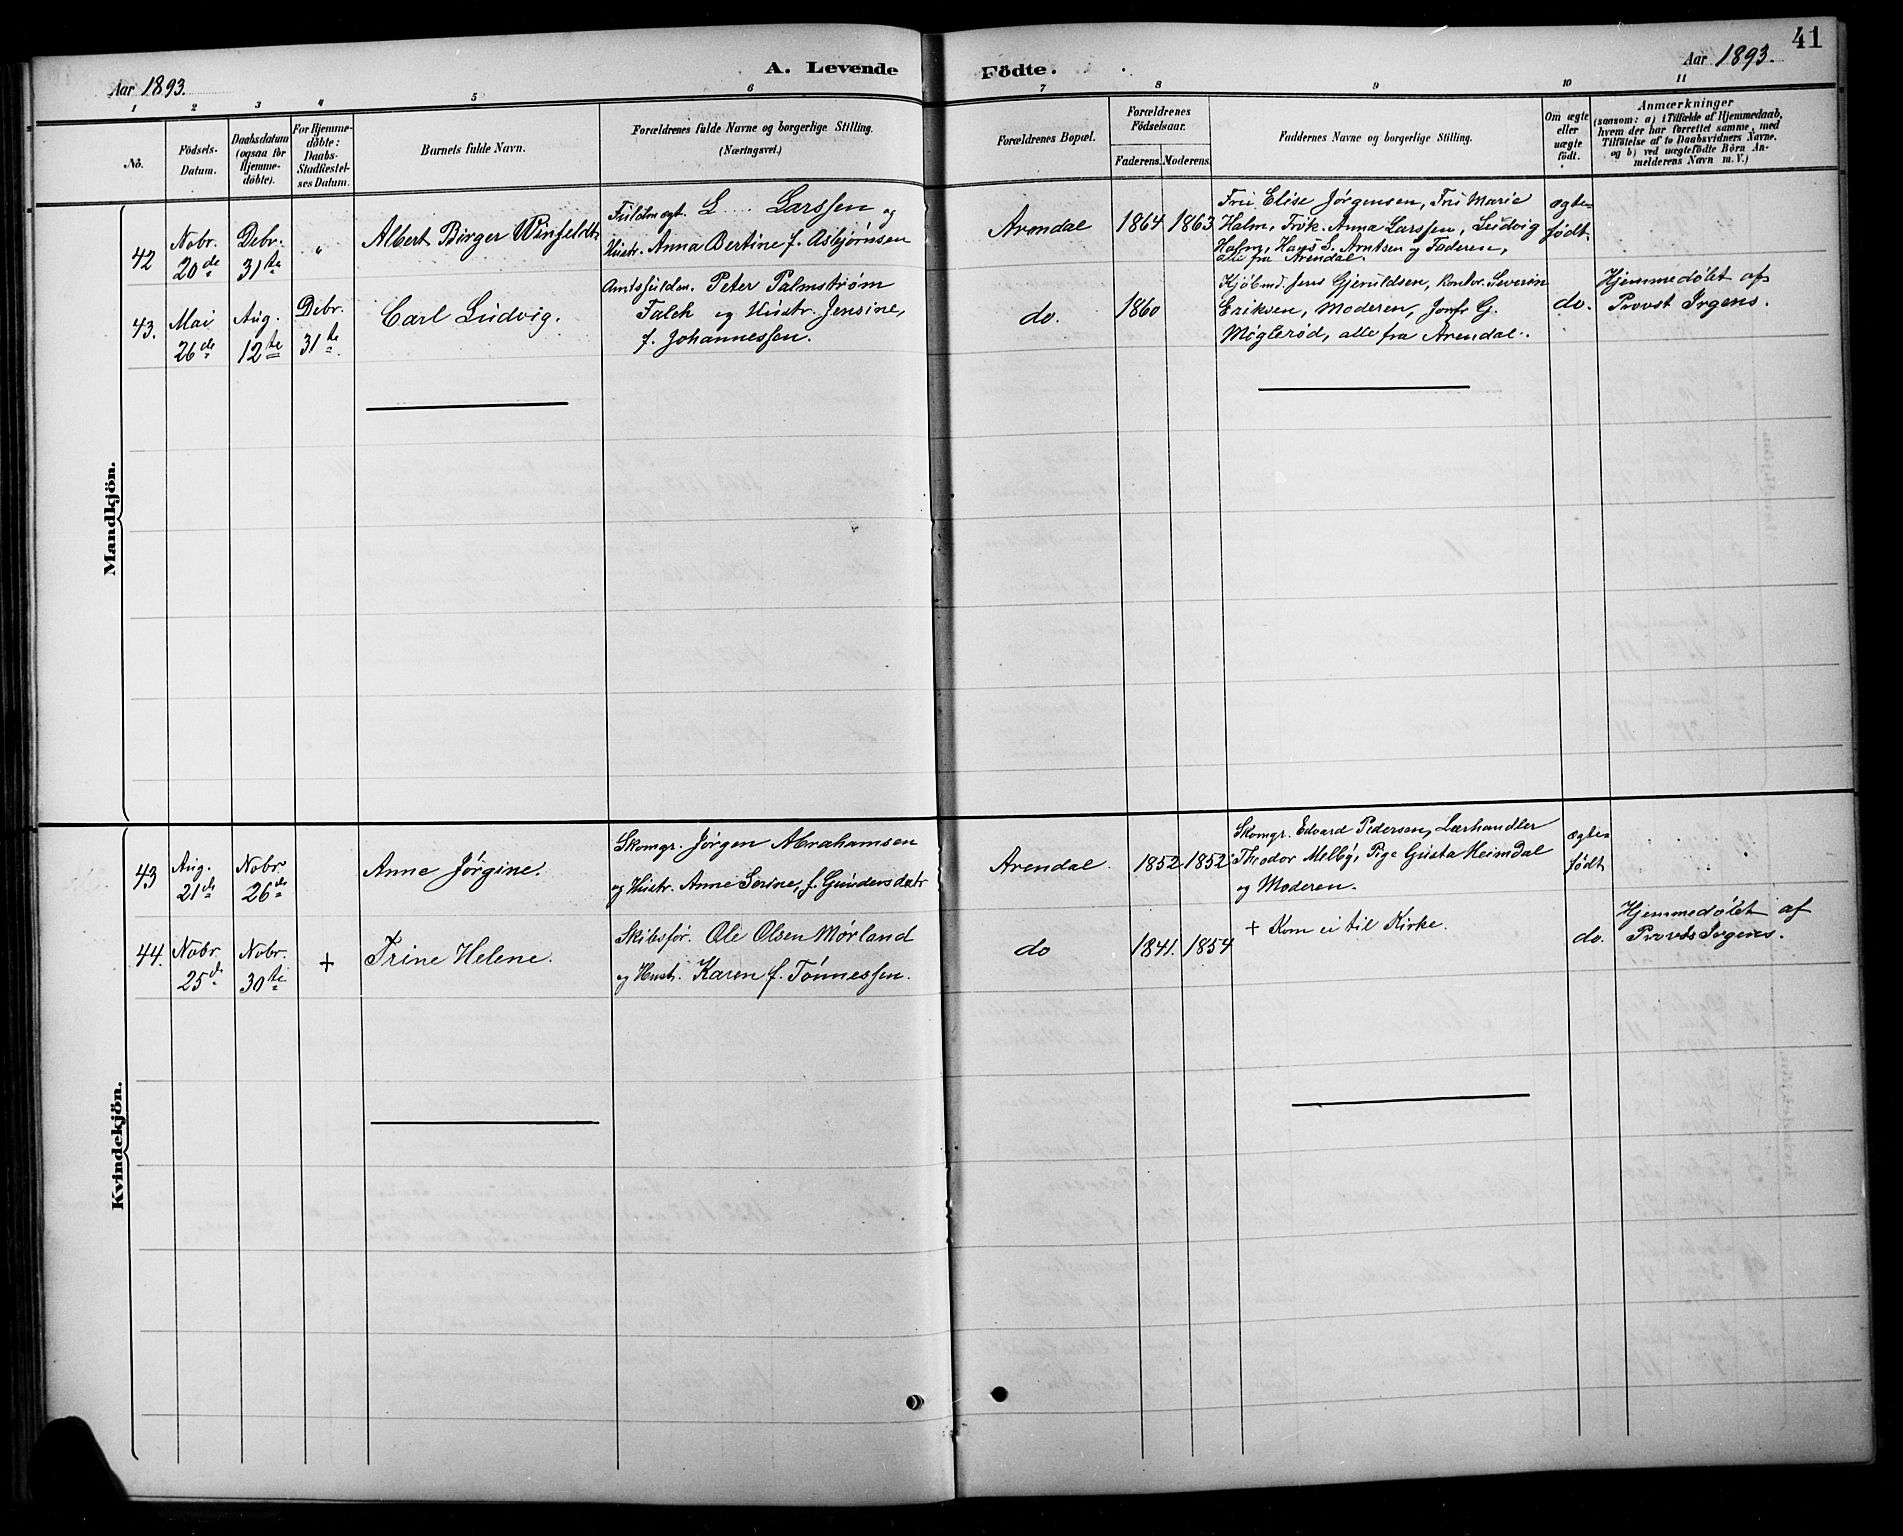 41
Aar 1893.
A. Levende Födte.
Aar 1893.
1 2 3 4 5 6 7 8 9 10 11
No.
Födsels-
Datum.
Daabsdatum
(ogsaa for
Hjemme-
döbte).
For Hjemme-
döbte:
Daabs-
Stadfæstel-
ses Datum.
Barnets fulde Navn.
Forældrenes fulde Navne og borgerlige Stilling.
(Næringsvei.)
Forældrenes Bopæl.
Forældrenes
Födselsaar.
Faderens. Moderens.
Faddernes Navne og borgerlige Stilling.
Om ægte
eller
uægte
födt.
Anmærkninger
(saasom: a) i Tilfælde af Hjemmedaab,
hvem der har forrettet samme, med
Tilföielse af to Daabsvidners Navne.
og b) ved uægtefödte Börn An-
melderens Navn m. V.)
Mandkjön.
42
Nobr.
20de
Debr.
31te
"
Albert Birger Winfeldt
Fuldmægt. L.... Larssen og
Hustr. Anna Bertine f. Asbjørnssen
Arendal
1864 1863
Fru Elise Jørgensen, Fru Marie
Holm, Frøk. Anna Larssen, Ludvig
Holm, Hans S. Arntsen og Faderen,
alle fra Arendal.
ægte-
født.
43.
Mai
26de
Aug.
12te
Debr.
31te
Carl Ludvig.
Amtsfuldm. Peter Palmstrøm
Falch og Hustr. Jensine,
f. Johannessen.
do.
1860
Kjøbmd. Jens Gjeruldsen, Kontor. Severin
Eriksen, Moderen, Jomfr G.
Møglerød, alle fra Arendal.
do.
Hjemmedøbt af
Provst Irgens.
Kvindekjön.
43
Aug.
21de
Nobr.
26de
Anne Jørgine.
Skomgr. Jørgen Abrahamsen
og Hustr. Anne Serine, f. Gundersdatr
Arendal.
1852 1852
Skomgr. Edvard Pedersen, Lærhandler
Theodor Melbÿ, Pige Gusta Heimdal
og Moderen.
ægte-
født
44.
Nobr.
25de
Nobr.
30te
+
Trine Helene.
Skibsfør. Ole Olsen Mørland
og Hustr. Karen f. Tønnessen.
do
1841. 1854
+ Kom ei til Kirke.
do.
Hjemmedøbt af
Provst Irgens.